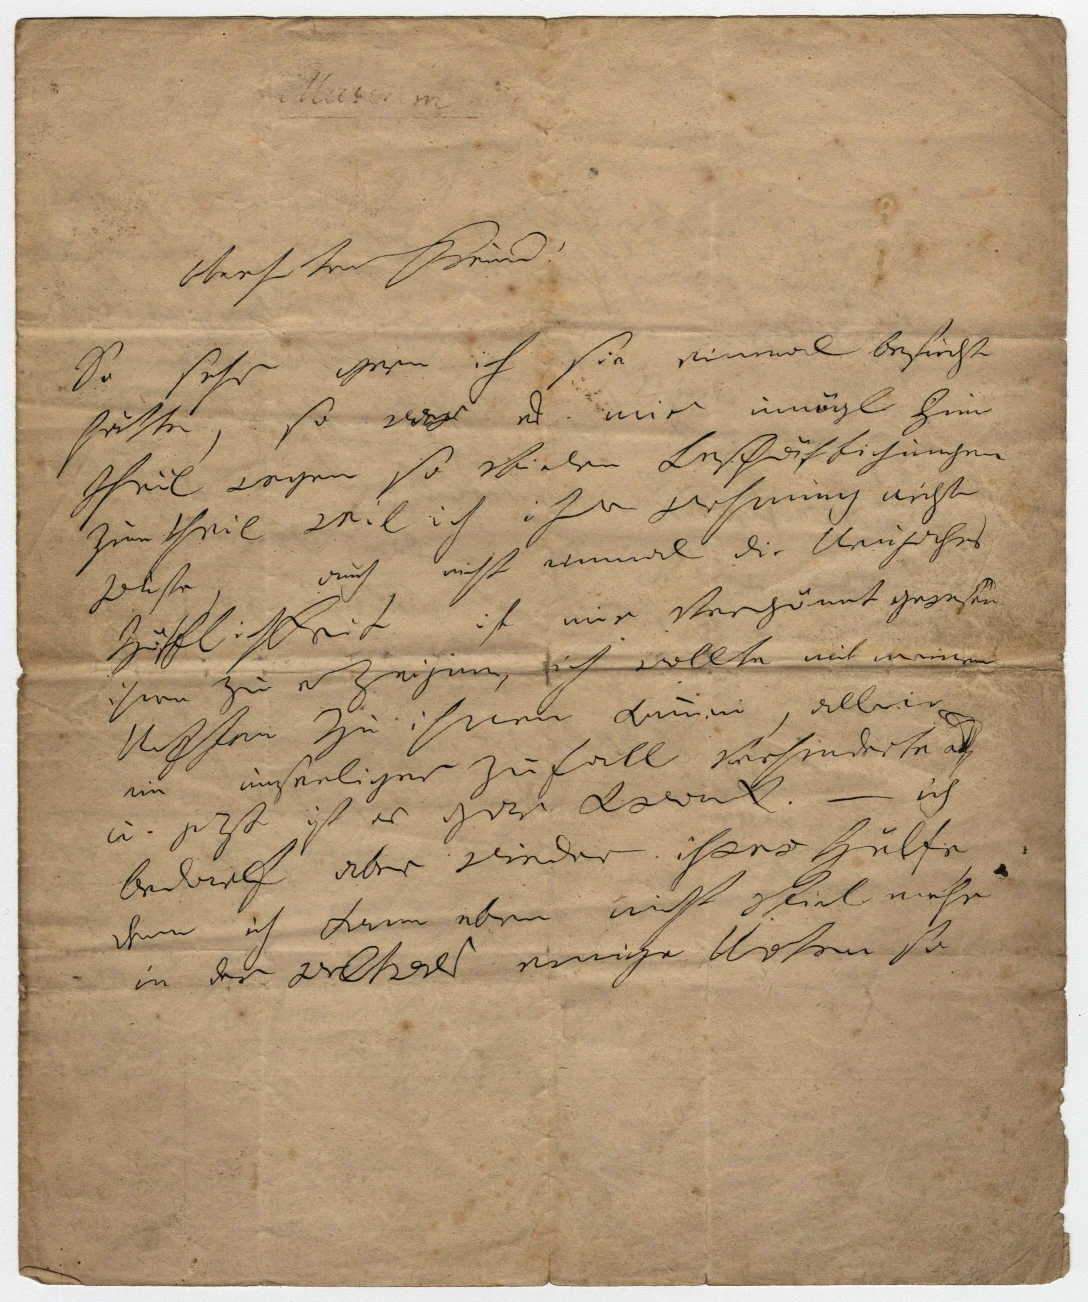 Museum
Werther Freund!
So sehr gern ich sie einmal besucht
hätte, so war es mir unmögl zum
theil wegen so vielen Beschäftichungen
zum theil weil ich ihre wohnung nicht
wuste, auch nicht einmal die Neujahrs
Höfflichkeit ist mir Vergönnt gewesen
ihnen zu erzeigen, ich wollte mit meinem
Neffen zu ihnen kommen, allein
ein unseeliger Zufall Verhinderte
u. jezt ist er gar krank. — ich
bedarf aber wieder ihrer Hülfe
denn ich kann eben nicht Viel mehr
in der welt als einige Noten so